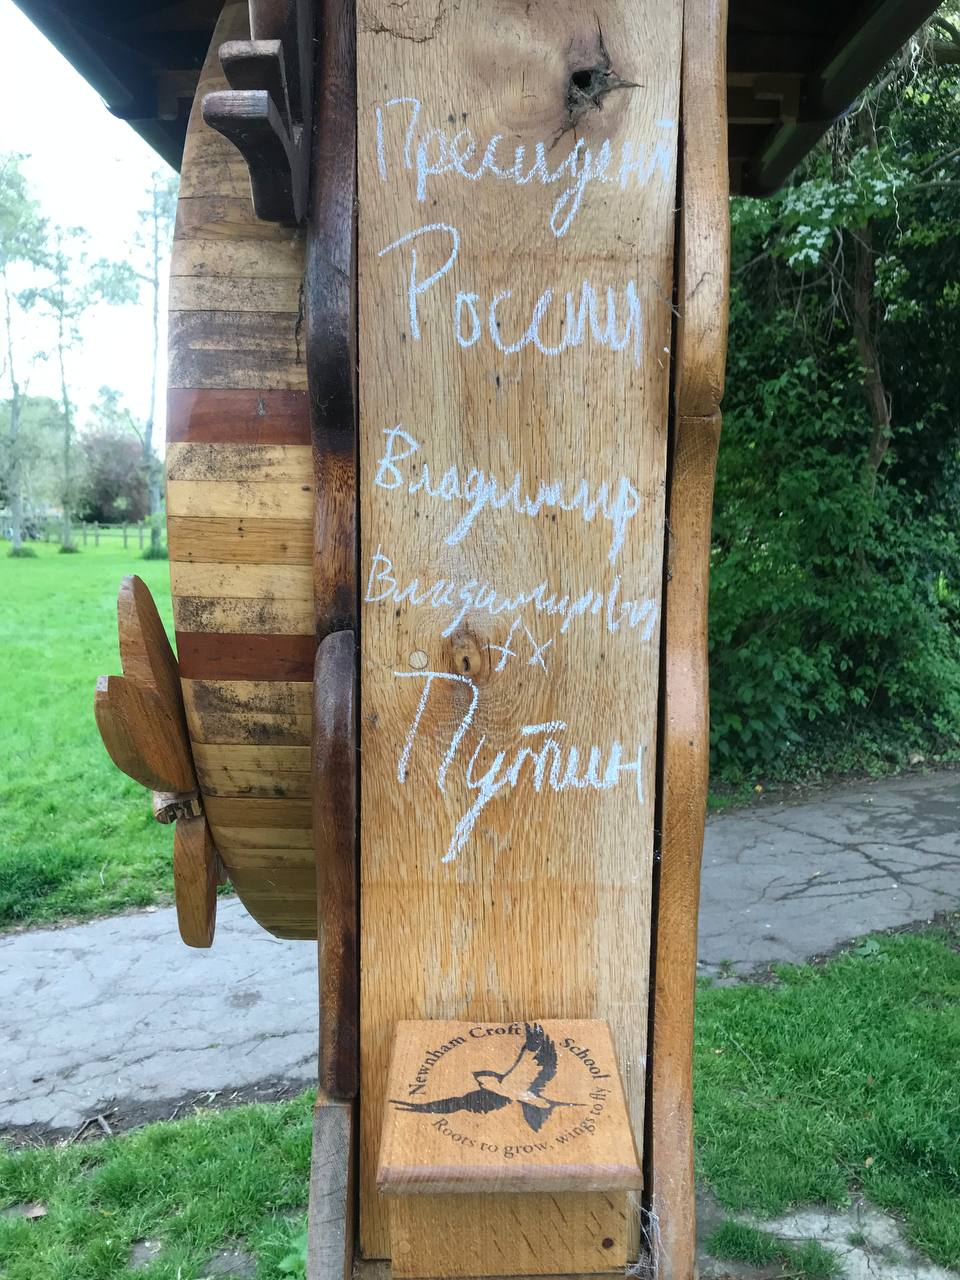 Пресидент
России
Владимир
Владимирович
Путин
Newnham Croft School
Roots to grow, wings to fly